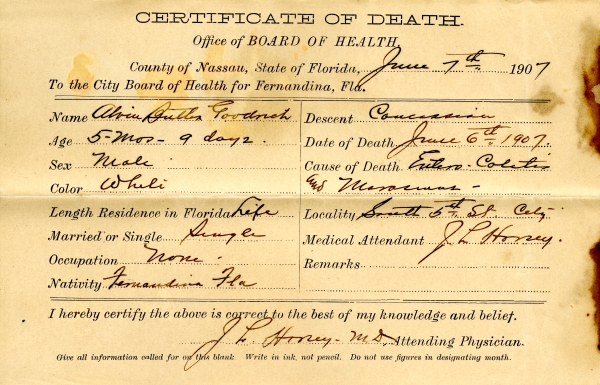 CERTIFICATE OF DEATH.
Office of BOARD OF HEALTH
County of Nassau, State of Florida, June 7th 1907
To the City Board of Health for Fernandina, Fla.
Name Alvin Butler Goodrich
Age 5-Mos- 9 days.
Sex Male
Color White
Length Residence in Florida Life
Married or Single Single
Occupation None.
Nativity Fernandina Fla
Descent Caucassian
Date of Death June 6th 1907.
Cause of Death Entero-Colitis
and Marasmus-
Locality South 5th St. City
Medical Attendant J L Horsey.
Remarks
I hereby certify the above is correct to the best of my knowledge and belief.
J L Horsey- M D, Attending Physician.
Give all information called for on this blank. Write in ink, not pencil. Do not use figures in designating month.